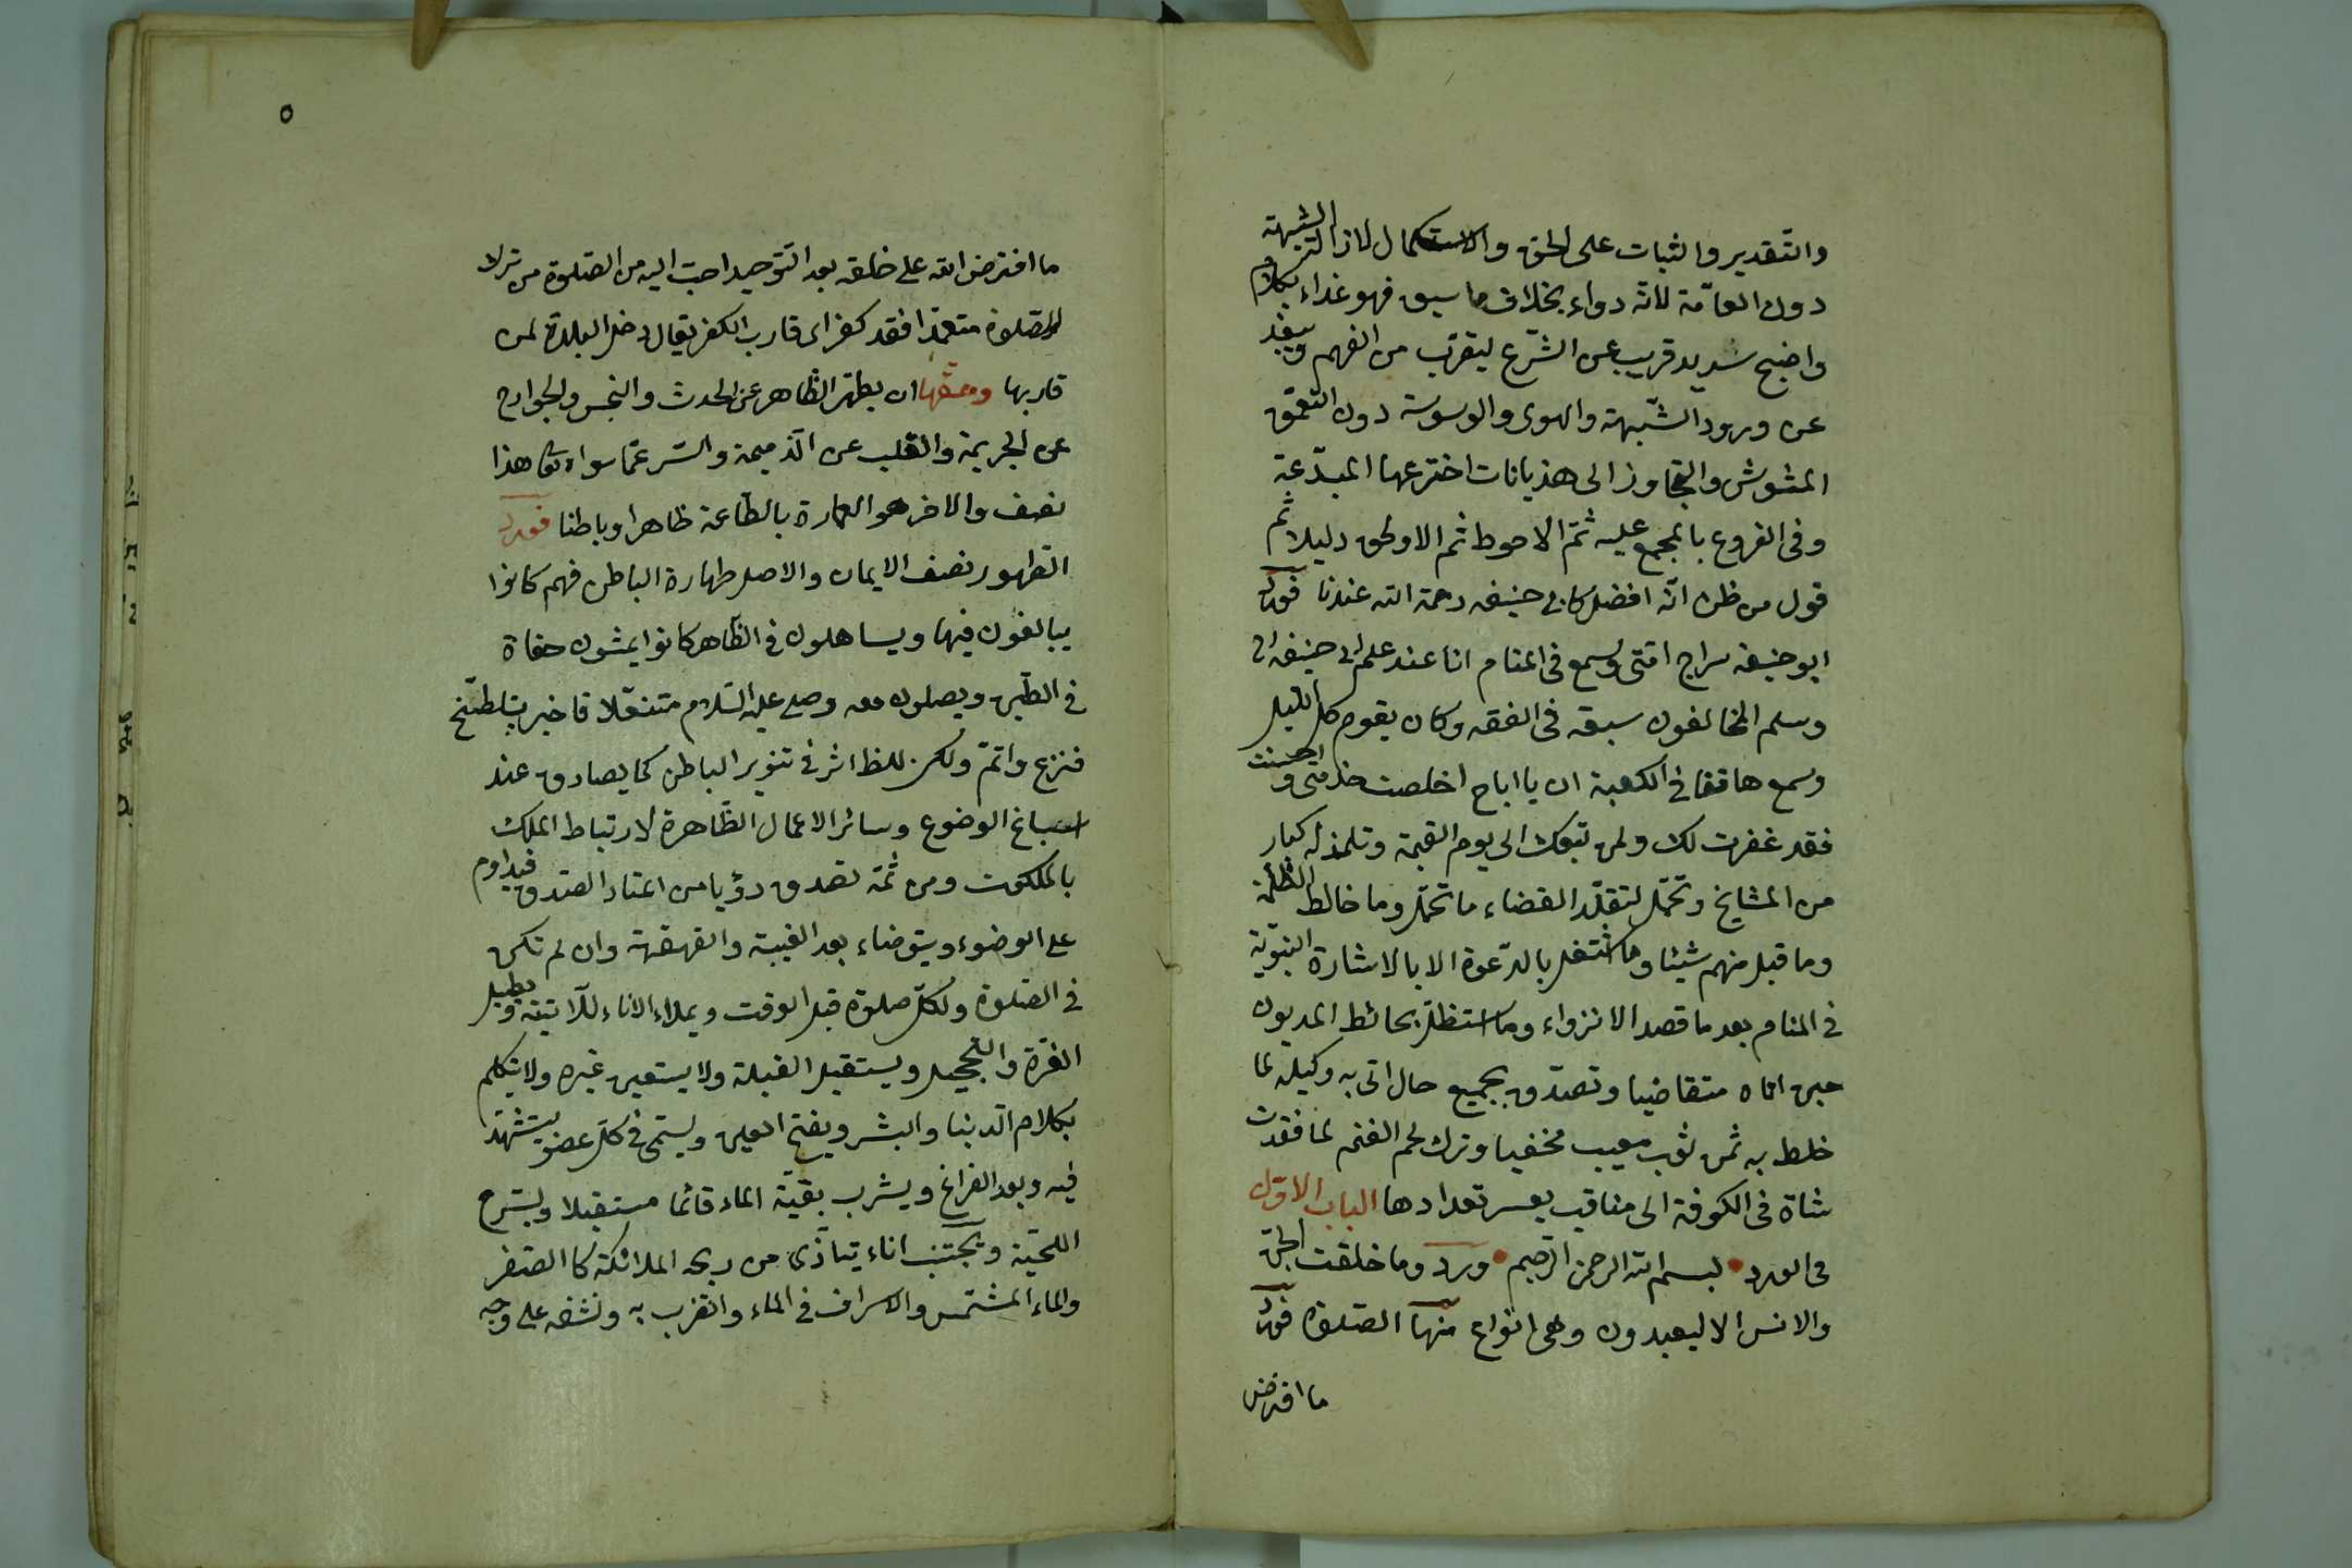 والتقدير والثبات على الحق والاستكمال لازالة الشبهة
دون العامّة لانه دواء بخلاف ما سبق فهو غذاء بكلام
واضح سديد قريب عن الشرع ليقرب من الفهم ويبعد
عن ورود الشبهة والهوى والوسوسة دون التعمّق
المشوش والتجاوز الى هذيانات اخترعها المبدّعة
وفى الفروع بالمجمع عليه ثمّ الاحوط ثم الاوثق دليلا ثم
قول من ظن انّه افضل كابى حنيفه رحمة الله عندنا فورد
ابو حنيفه سراج امّتى وسمع فى المنام انا عند علم ابى حنيفه
وسلم المخالفون سبقه فى الفقه وكان يقوم كل الليل
وسمع هاتفا فى الكعبة ان يا ابا ح اخلصت خدمتى واحسنت
فقد غفرت لك ولمن تبعك الى يوم القيمة وتلمذ له كبار
من المشايخ وتحمّل لتقلّد القضاء ما تحمّل وما خالط الظلمة
وما قبل منهم شيئا وما اشتغل بالدّعوة الا بالاشارة النبويّة
فى المنام بعد ما قصد الانزواء وما استظلّ بحائط المديون
حين اتاه متقاضيا وتصدّق بجميع حال اتى به وكيله لما
خلط به ثمن ثوب معيب مخفيا وترك لحم الغنم لما فقدت
شاة فى الكوفة الى مناقب يعسر تعدادها الباب الاوّل
فى الورد بسم الله الرحمن الرحيم ورد وما خلقت الجنّ
والانس الا ليعبدون وهى انواع منها الصلوة فورد
ما افترض
٥
ما افترض الله على خلقه بعد التّوحيد احبّ اليه من الصّلوة من ترك
الصّلوة متعمّدا فقد كفر اى قارب الكفر يقال دخل البلدة لمن
قاربها وحقّها ان يطهّر الظّاهر عن الحدث والنجس والجوارح
عن الجريمة والقلب عن الذّميمة والسّر عمّا سواه تعا هذا
نصف والاخر هو العمارة بالطّاعة ظاهرا وباطنا فورد
الطهور نصف الايمان والاصل طهارة الباطن فهم كانوا
يبالغون فيها ويساهلون فى الظاهر كانوا يمشون حفاة
فى الطّين ويصلون معه وصلى عليه السّلام متنعّلا فاخبر بتلطّخ
فنزع واتمّ ولكن للظ اثر فى تنوير الباطن كما يصادق عند
اسباغ الوضوع وسائر الاعمال الظّاهرة لارتباط الملك
بالملكوت ومن ثمّة تصدق رؤيا من اعتاد الصّدق فيداوم
على الوضوء ويتوضاء بعد الغيبة والقهقهة وان لم تكن
فى الصّلوة ولكلّ صلوة قبل الوقت ويملاء الاناء للآتية ويطيل
الغرّة والتّحجيل ويستقبل القبلة ولا يستعين غيره ولا يتكلم
بكلام الدّنيا والبشر ويفتح العين ويسمّى فى كلّ عضو يتشهّد
فيه وبعد الفراغ ويشرب بقيّة الماء قائما مستقبلا ويسّرح
اللّحية ويجتنب اناء يتاذّى من ريحه الملائكة كا الصّفر
والماء المشمّس والاسراف فى الماء والضرب به ونشفه على وجه